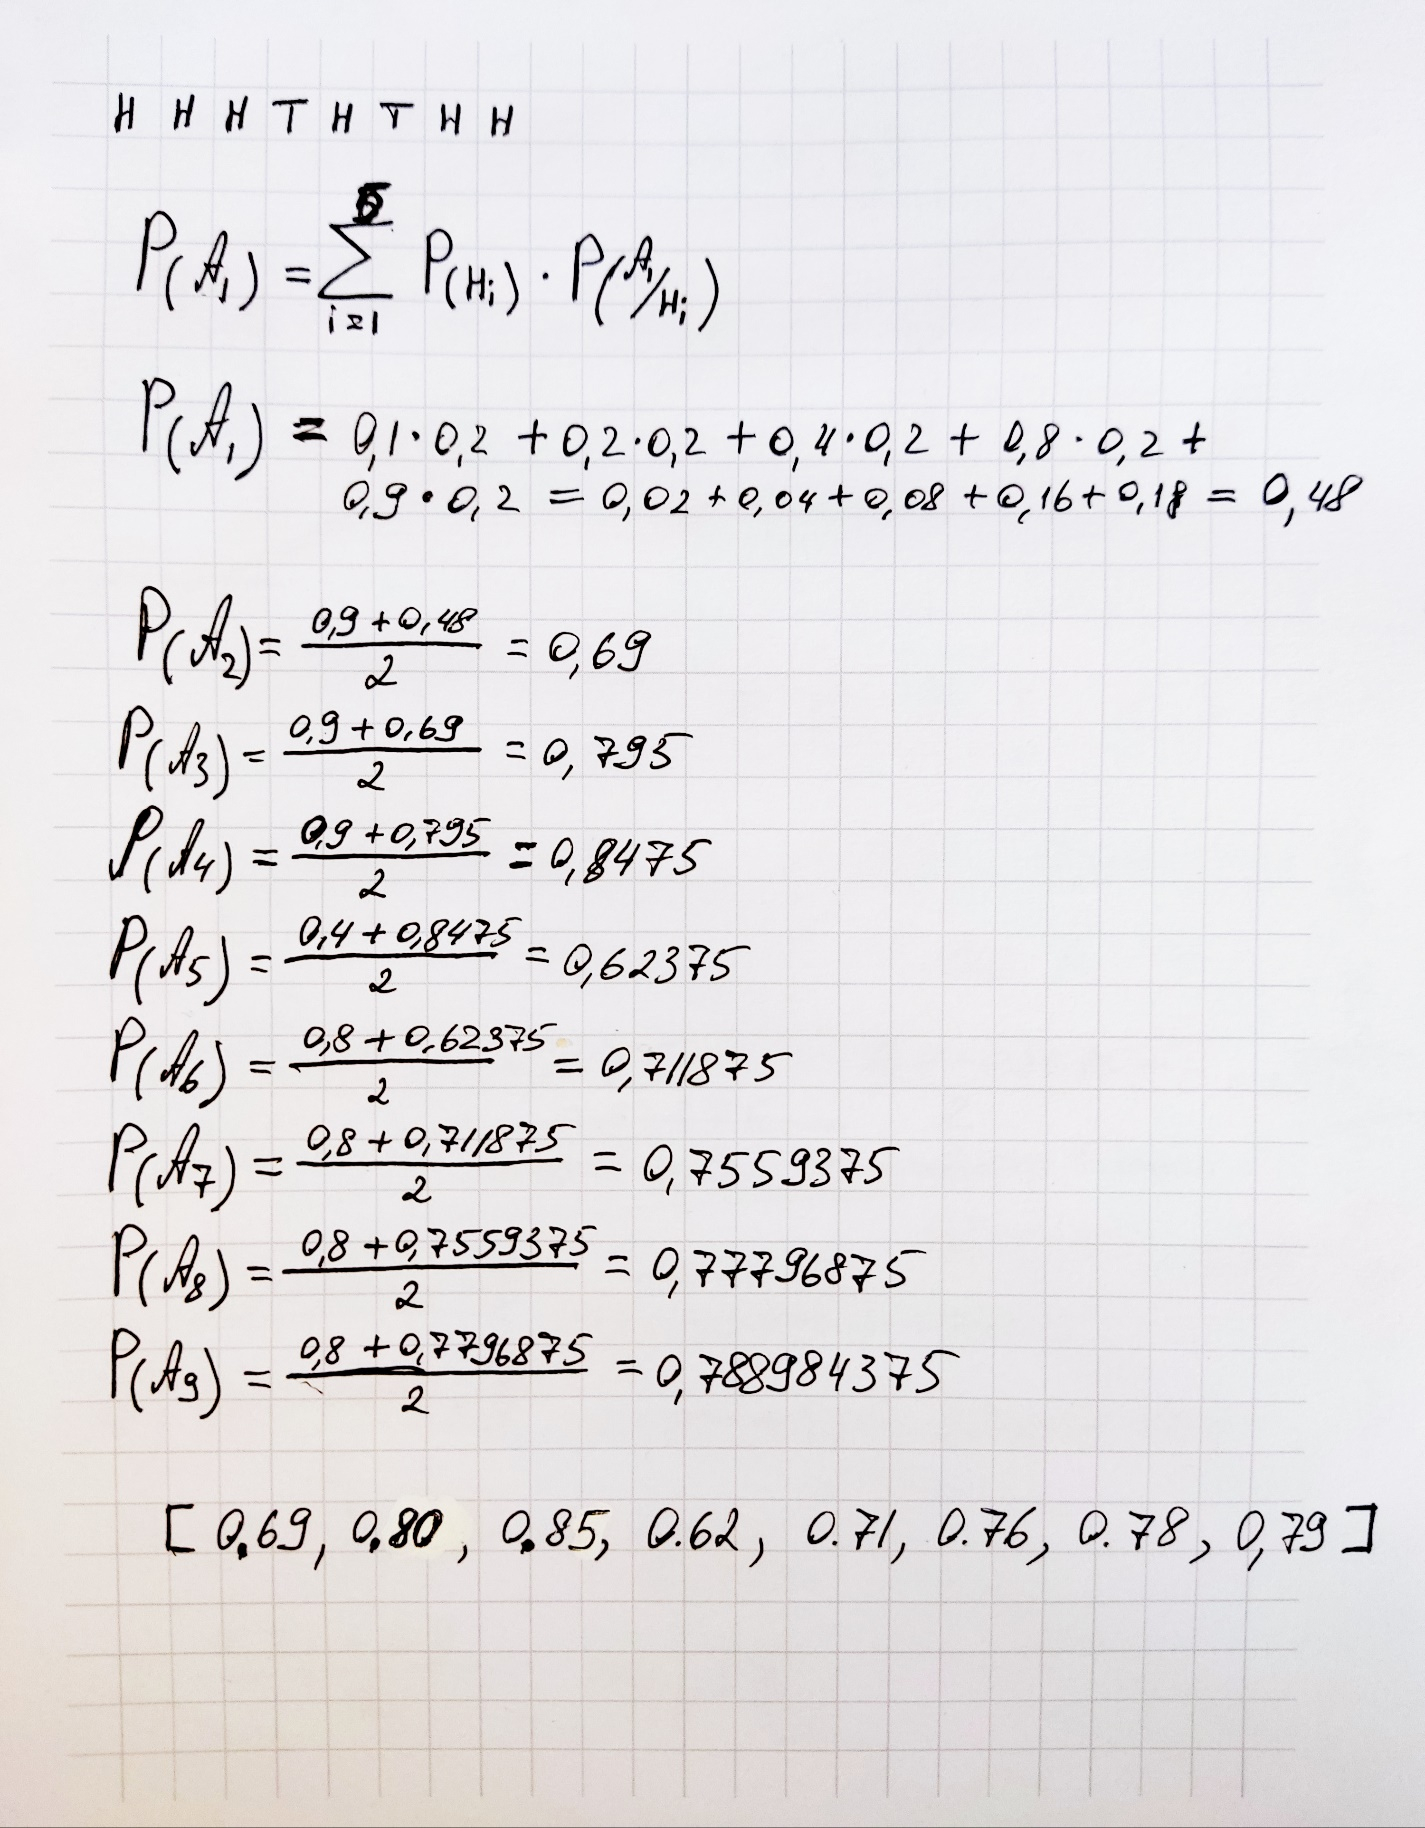 H H H T H T H H
P(A₁) = 5 ∑ i=1 P(Hi) · P(A₁/Hi)
P(A₁) = 0,1·0,2 + 0,2·0,2 + 0,4·0,2 + 0,8·0,2 +
0,9·0,2 = 0,02 + 0,04 + 0,08 + 0,16 + 0,18 = 0,48
P(A₂) = (0,9 + 0,48)/2 = 0,69
P(A₃) = (0,9 + 0,69)/2 = 0,795
P(A₄) = (0,9 + 0,795)/2 = 0,8475
P(A₅) = (0,4 + 0,8475)/2 = 0,62375
P(A₆) = (0,8 + 0,62375)/2 = 0,711875
P(A₇) = (0,8 + 0,711875)/2 = 0,7559375
P(A₈) = (0,8 + 0,7559375)/2 = 0,77796875
P(A₉) = (0,8 + 0,7796875)/2 = 0,788984375
[0.69, 0.80, 0.85, 0.62, 0.71, 0.76, 0.78, 0,79]